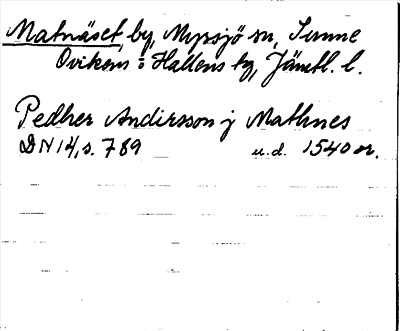 Matnäset, by, Myssjö sn, Sunne
Ovikens o Hallens tg, Jämtl. l.
Pedher Andirsson j Mathnes
DN 14, s. 789 u.d. 1540 or.